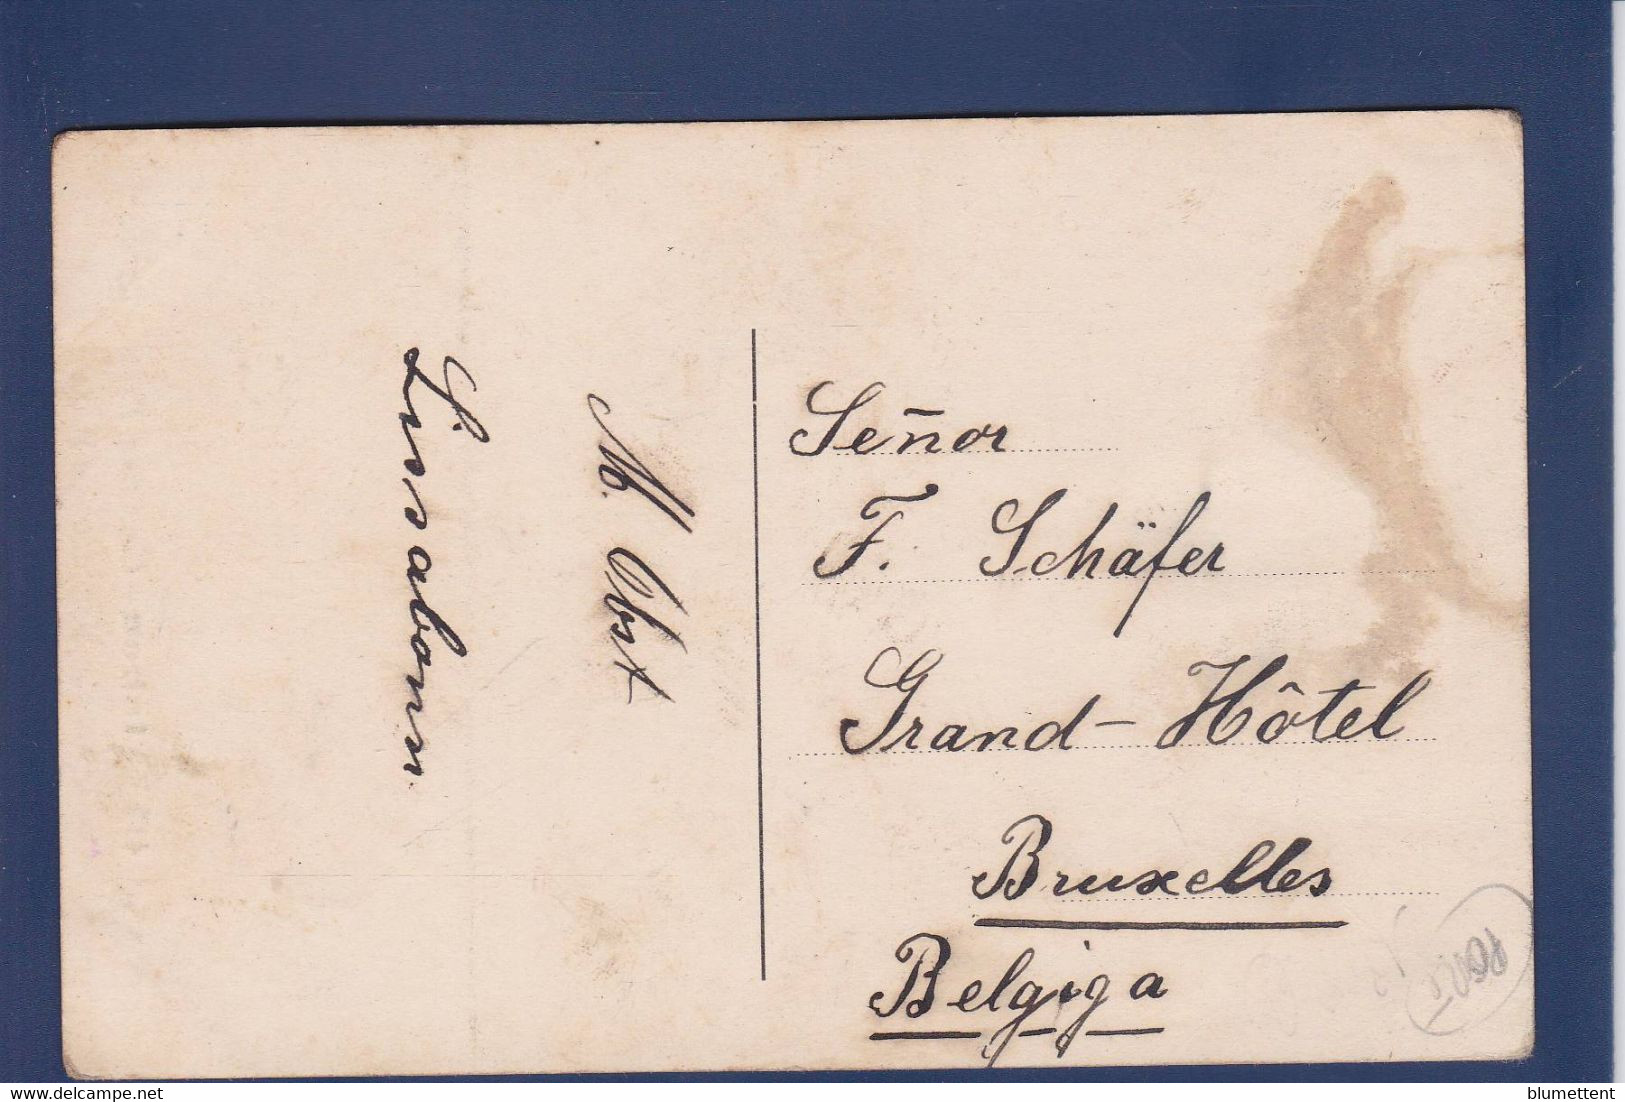 M. Obst
Lissabonn.
Señor
F. Schäfer
Grand-Hôtel
Bruxelles
Belgiga
delcampe.net
blumettent